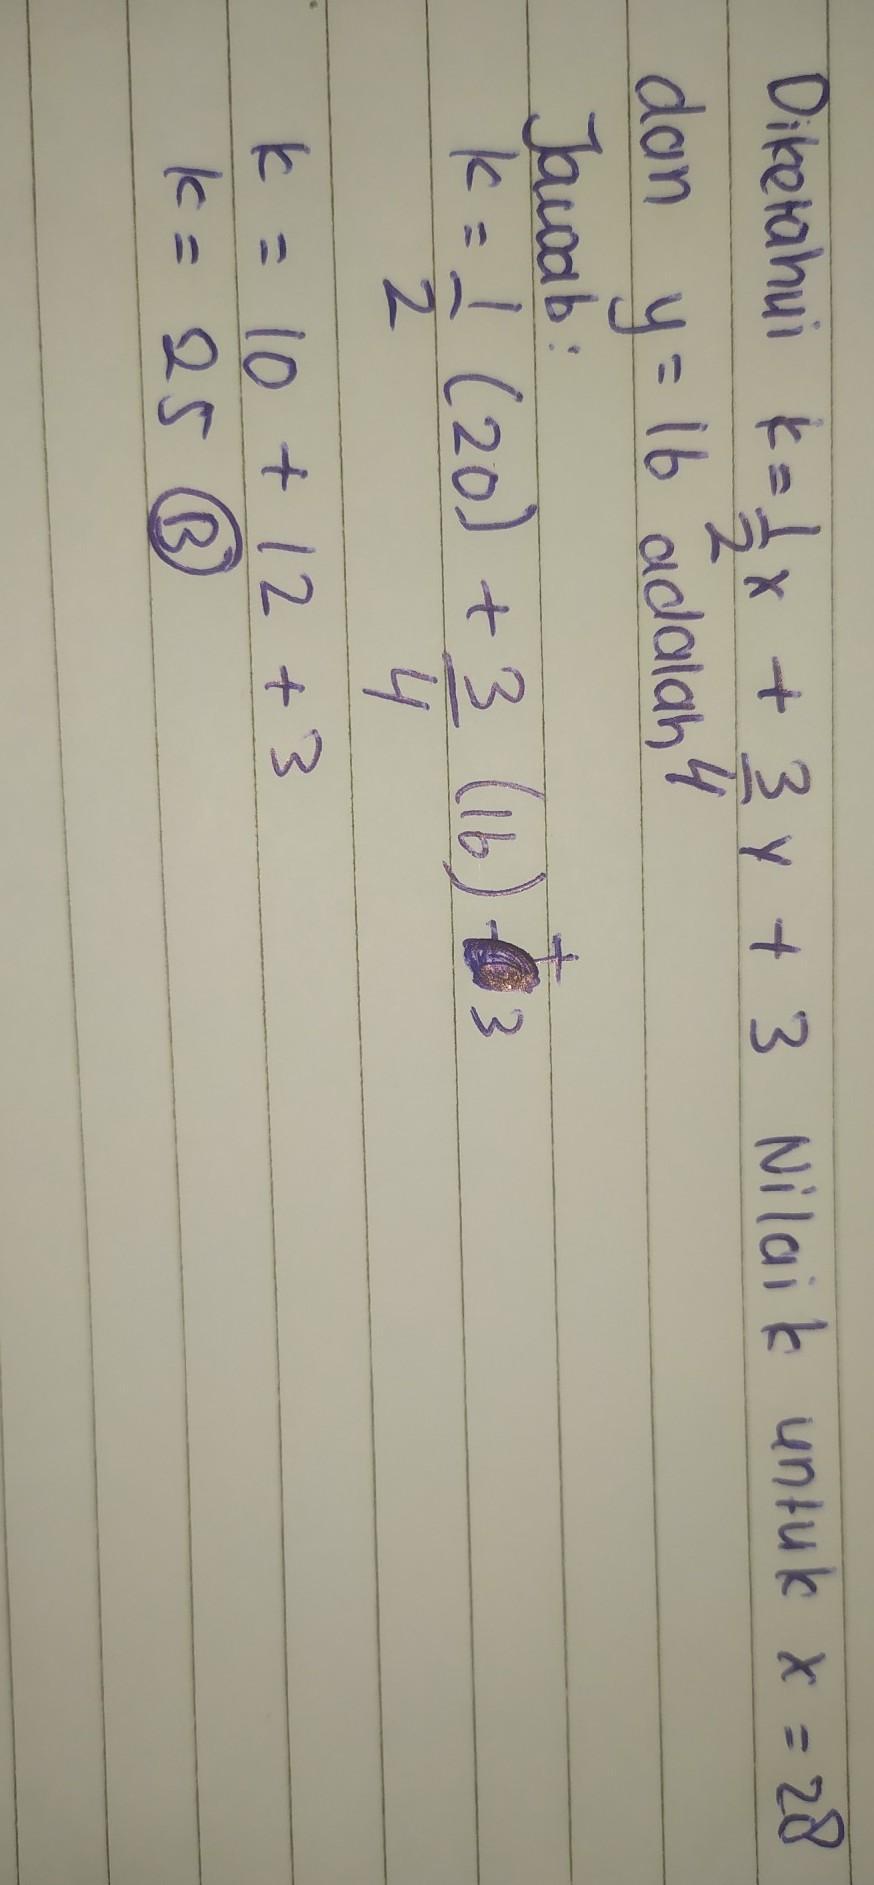 Diketahui k = 1/2 x + 3/4 y + 3 Nilai k untuk x = 28
dan y = 16 adalah
Jawab:
k = 1/2 (20) + 3/4 (16) + 3
k = 10 + 12 + 3
k = 25 B